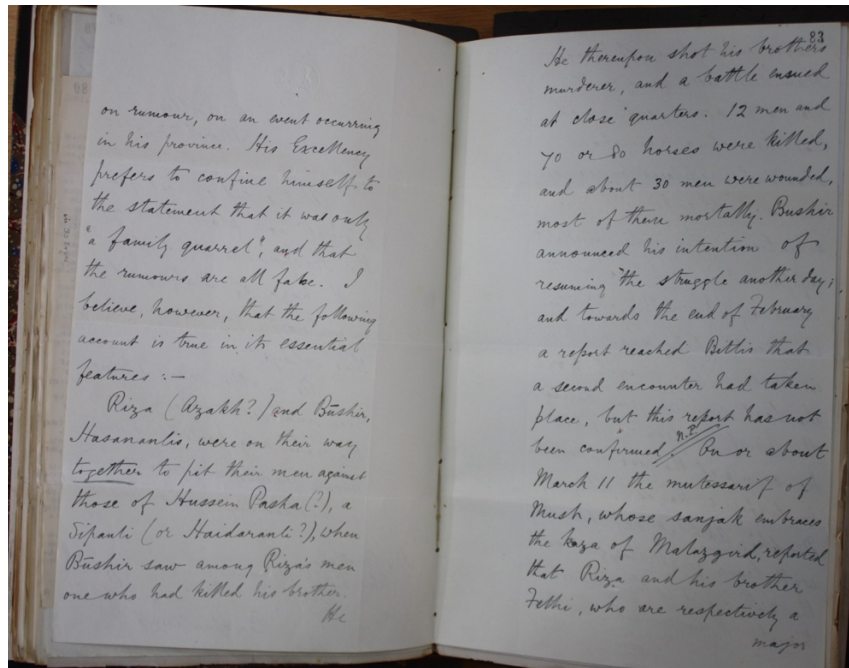 on rumour, on an event occurring
in his province. His Excellency
prefers to confine himself to
the statement that it was only
"a family quarrel", and that
the rumours are all false. I
believe, however, that the following
account is true in its essential
features :—
Riza (Azakh?) and Būshir,
Hasananlis, were on their way
together to pit their men against
those of Hussein Pasha (?), a
Sipanli (or Haidaranli?), when
Būshir saw among Riza's men
one who had killed his brother.
He
83
He thereupon shot his brother's
murderer, and a battle ensued
at close quarters. 12 men and
70 or 80 horses were killed,
and about 30 men were wounded,
most of them mortally. Bushir
announced his intention of
resuming the struggle another day;
and towards the end of February
a report reached Bitlis that
a second encounter had taken
place, but this report has not
been confirmed. // N.P. On or about
March 11 the mutessarif of
Mush, whose sanjak embraces
the kaza of Malazgird, reported
that Riza and his brother
Fethi, who are respectively a
major